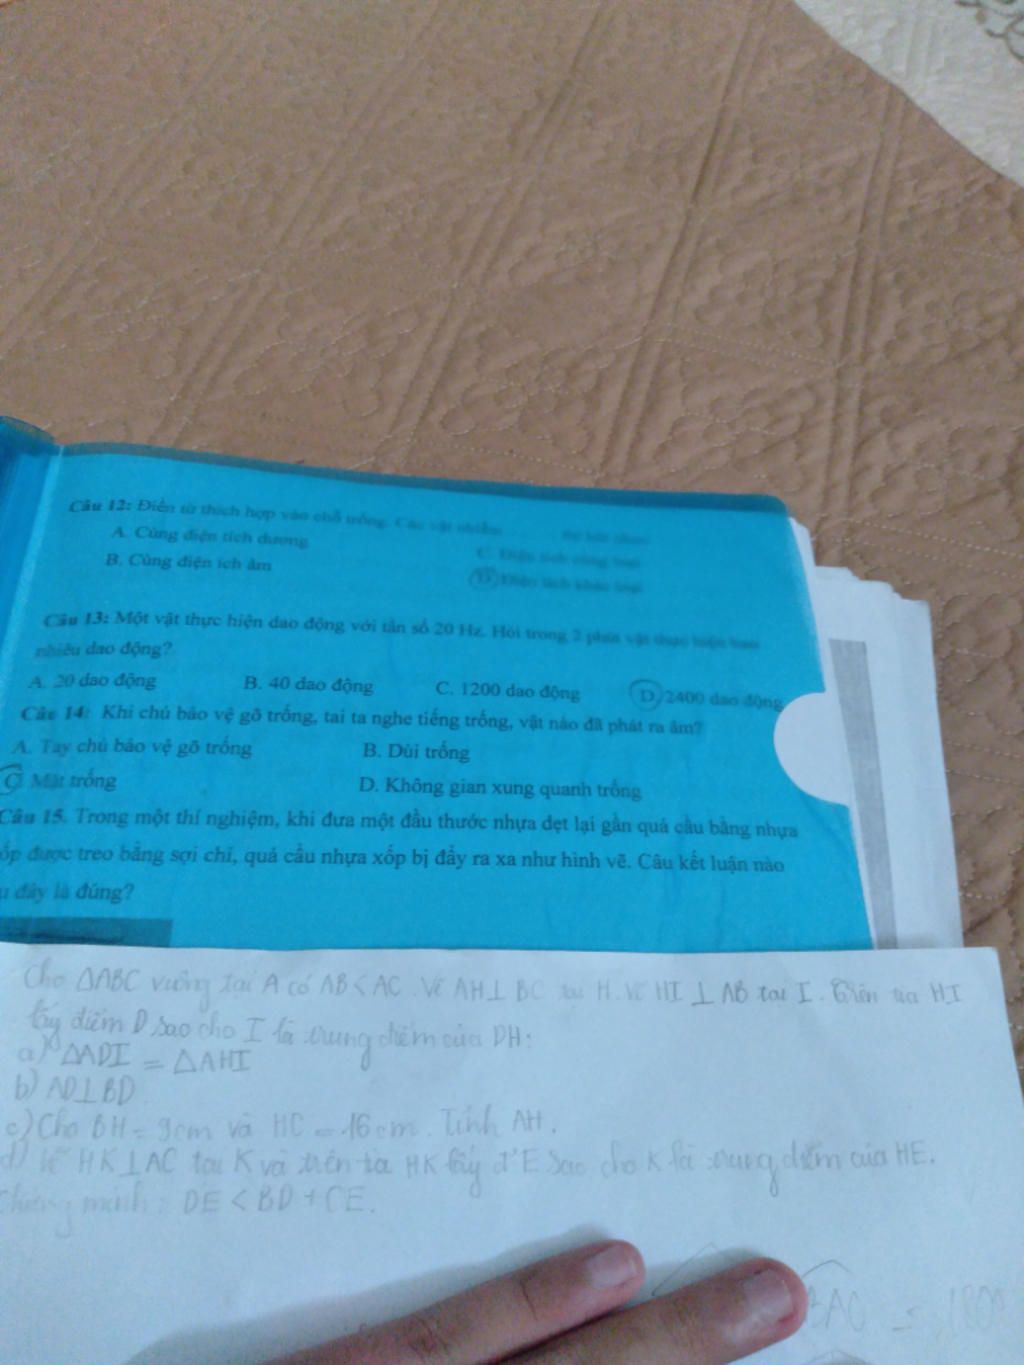 Câu 12: Điền từ thích hợp vào chỗ trống. Các vật nhiễm ........ thì hút nhau
A. Cùng điện tích dương
C. Điện tích cùng loại
B. Cùng điện ích âm
D. Điện tích khác loại
Câu 13: Một vật thực hiện dao động với tần số 20 Hz. Hỏi trong 2 phút vật thực hiện bao
nhiêu dao động?
A. 20 dao động B. 40 dao động C. 1200 dao động D. 2400 dao động
Câu 14: Khi chú bảo vệ gõ trống, tai ta nghe tiếng trống, vật nào đã phát ra âm?
A. Tay chú bảo vệ gõ trống B. Dùi trống
C. Mặt trống D. Không gian xung quanh trống
Câu 15. Trong một thí nghiệm, khi đưa một đầu thước nhựa dẹt lại gần quả cầu bằng nhựa
ốp được treo bằng sợi chỉ, quả cầu nhựa xốp bị đẩy ra xa như hình vẽ. Câu kết luận nào
u đây là đúng?
Cho ΔABC vuông tại A có AB < AC. Vẽ AH ⊥ BC tại H. Vẽ HI ⊥ AB tại I. Trên tia HI
lấy điểm D sao cho I là trung điểm của DH:
a) ΔADI = ΔAHI
b) AD ⊥ BD
c) Cho BH = 9cm và HC = 16cm. Tính AH.
d) Vẽ HK ⊥ AC tại K và trên tia HK lấy đ' E sao cho K là trung điểm của HE.
Chứng minh: DE < BD + CE.
BAC = 180°